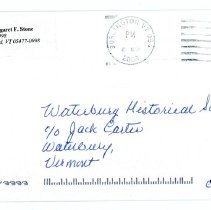 garet F. Stone
VT 05477-0998
BURLINGTON VT
PM
2003
Waterbury Historical S
c/o Jack Carter
Waterbury,
Vermont